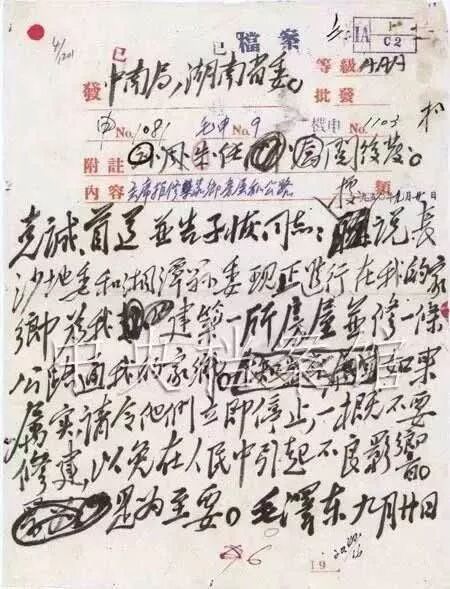 4/1201
已 已 檔案 IA C2
發 中南局，湖南省委。 等級 AAA
批發
申 No. 1081 毛申 No. 9 機申 1103
附註 周後發。
內容 類 九月廿日
克誠、首道並告子恢同志：說長
沙地委和湘潭縣委現正進行在我的家
鄉為我建築一所房屋並修一條
公路通我的家鄉。如果
屬實，請令他們立即停止，一概不要
修建，以免在人民中引起不良影響。
是為至要。毛澤東九月廿日
6
19
中央档案馆